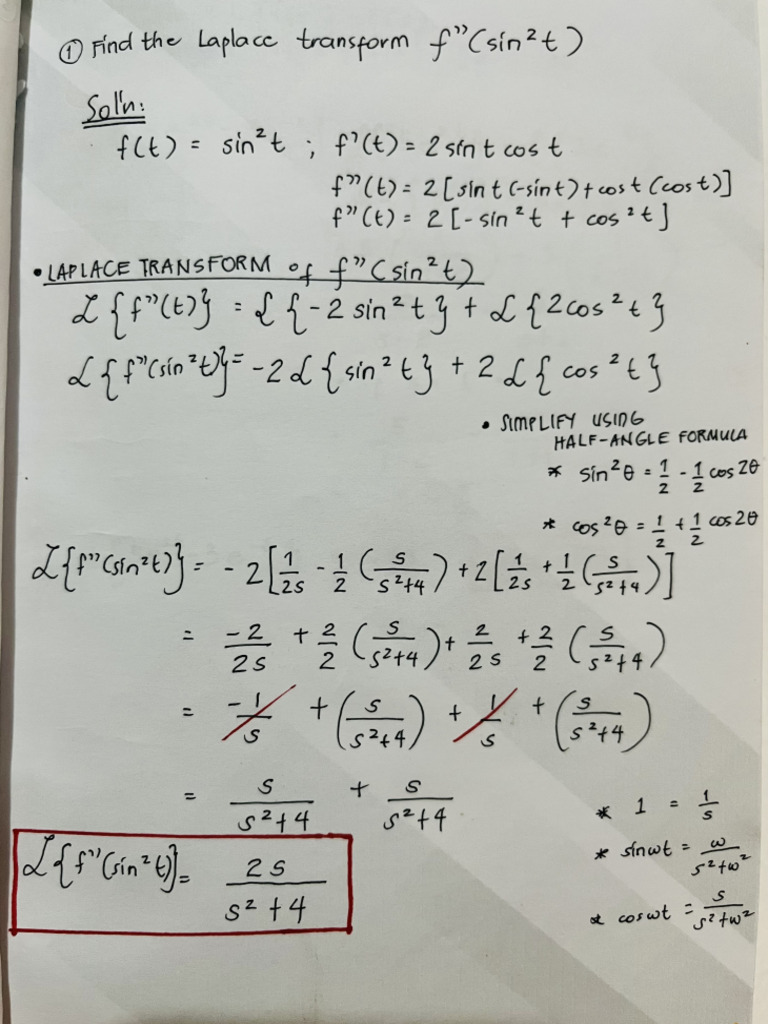 ① Find the Laplace transform f"(sin²t)
Sol'n:
f(t) = sin²t ; f'(t) = 2 sin t cos t
f"(t) = 2[sin t (-sin t) + cos t (cos t)]
f"(t) = 2[-sin²t + cos²t]
• LAPLACE TRANSFORM of f"(sin²t)
ℒ{f"(t)} = ℒ{-2 sin²t} + ℒ{2cos²t}
ℒ{f"(sin²t)} = -2ℒ{sin²t} + 2ℒ{cos²t}
• SIMPLIFY USING
HALF-ANGLE FORMULA
* sin²θ = 1/2 - 1/2 cos 2θ
* cos²θ = 1/2 + 1/2 cos 2θ
ℒ{f"(sin²t)} = -2[1/2s - 1/2 (s/s²+4) + 2[1/2s + 1/2 (s/s²+4)]
= -2/2s + 2/2 (s/s²+4) + 2/2s + 2/2 (s/s²+4)
= -1/s + (s/s²+4) + 1/s + (s/s²+4)
= s/s²+4 + s/s²+4
ℒ{f"(sin²t)} = 2s/s²+4
* 1 = 1/s
* sin ωt = ω/s²+ω²
* cos ωt = s/s²+ω²